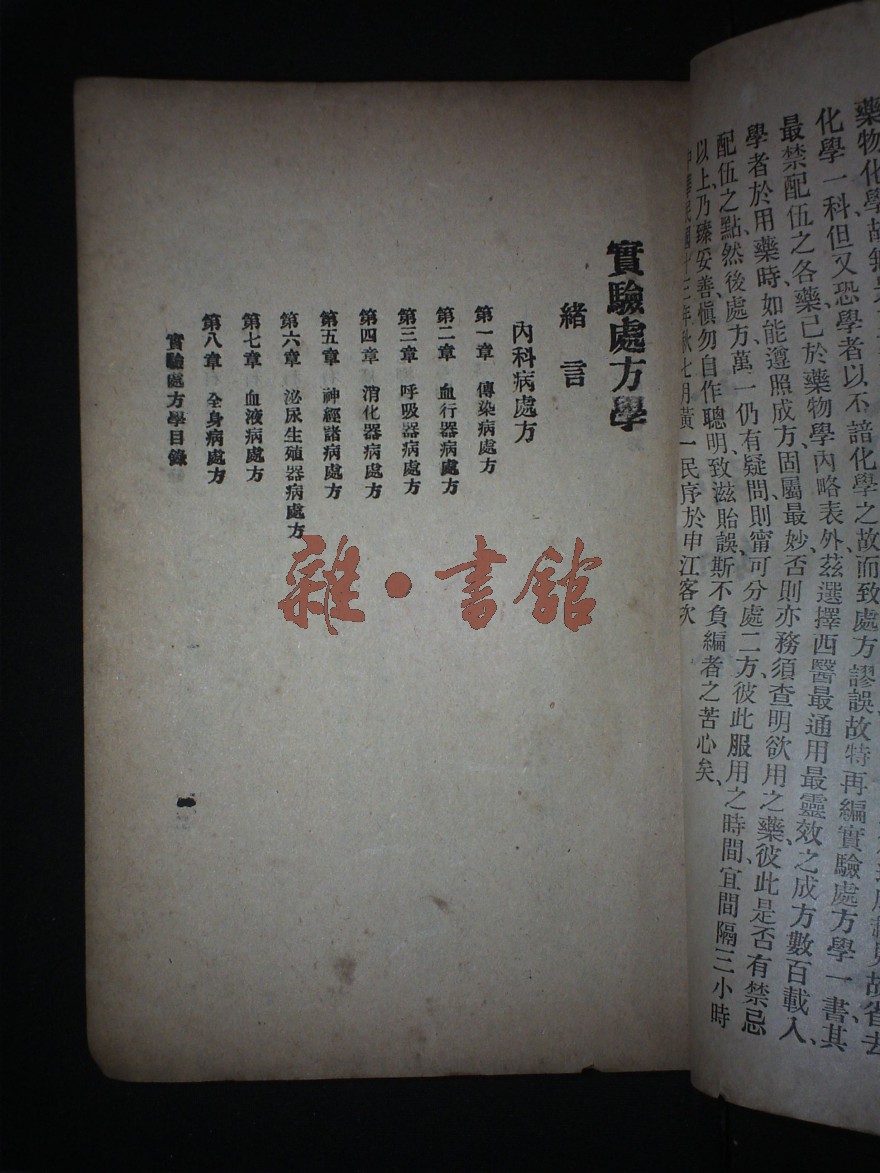 藥物化學故
化學一科但又恐學者以不諳化學之故而致處方謬誤故特再編實驗處方學一書、其
最禁配伍之各藥已於藥物學內略表外茲選擇西醫最通用最靈效之成方數百載入、
學者於用藥時、如能遵照成方、固屬最妙否則亦務須查明欲用之藥彼此是否有禁忌
配伍之點然後處方、萬一仍有疑問則甯可分處二方、彼此服用之時間宜間隔三小時
以上、乃臻妥善、愼勿自作聰明、致滋貽誤、斯不負編者之苦心矣、
中華民國十三年秋七月黃一民序於申江客次
實驗處方學
緒言
內科病處方
第一章 傳染病處方
第二章 血行器病處方
第三章 呼吸器病處方
第四章 消化器病處方
第五章 神經諸病處方
第六章 泌尿生殖器病處方
第七章 血液病處方
第八章 全身病處方
實驗處方學目錄
一
雜·書館